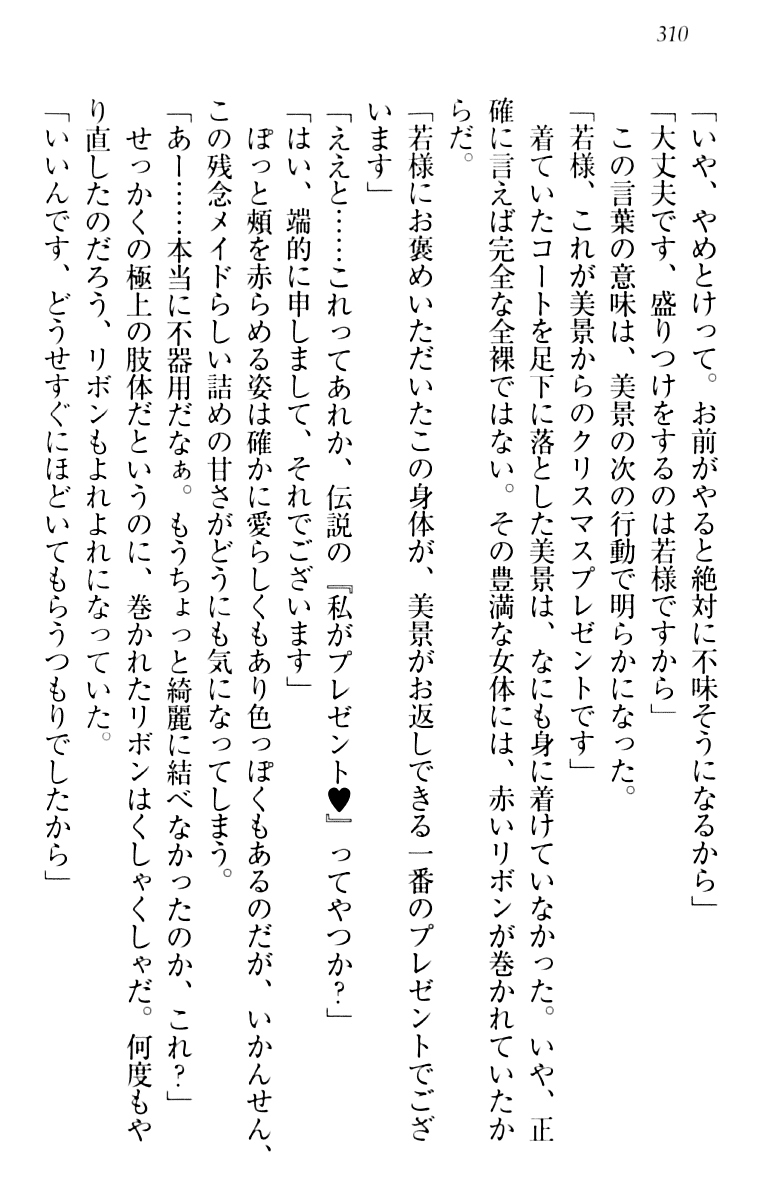 310
「いや、やめとけって。お前がやると絶対に不味そうになるから」
「大丈夫です、盛りつけをするのは若様ですから」
この言葉の意味は、美景の次の行動で明らかになった。
「若様、これが美景からのクリスマスプレゼントです」
着ていたコートを足下に落とした美景は、なにも身に着けていなかった。いや、正
確に言えば完全な全裸ではない。その豊満な女体には、赤いリボンが巻かれていたか
らだ。
「若様にお褒めいただいたこの身体が、美景がお返しできる一番のプレゼントでござ
います」
「ええと……これってあれか、伝説の『私がプレゼント♥』ってやつか？」
「はい、端的に申しまして、それでございます」
ぽっと頬を赤らめる姿は確かに愛らしくもあり色っぽくもあるのだが、いかんせん、
この残念メイドらしい詰めの甘さがどうにも気になってしまう。
「あー……本当に不器用だなぁ。もうちょっと綺麗に結べなかったのか、これ？」
せっかくの極上の肢体だというのに、巻かれたリボンはくしゃくしゃだ。何度もや
り直したのだろう、リボンもよれよれになっていた。
「いいんです、どうせすぐにほどいてもらうつもりでしたから」